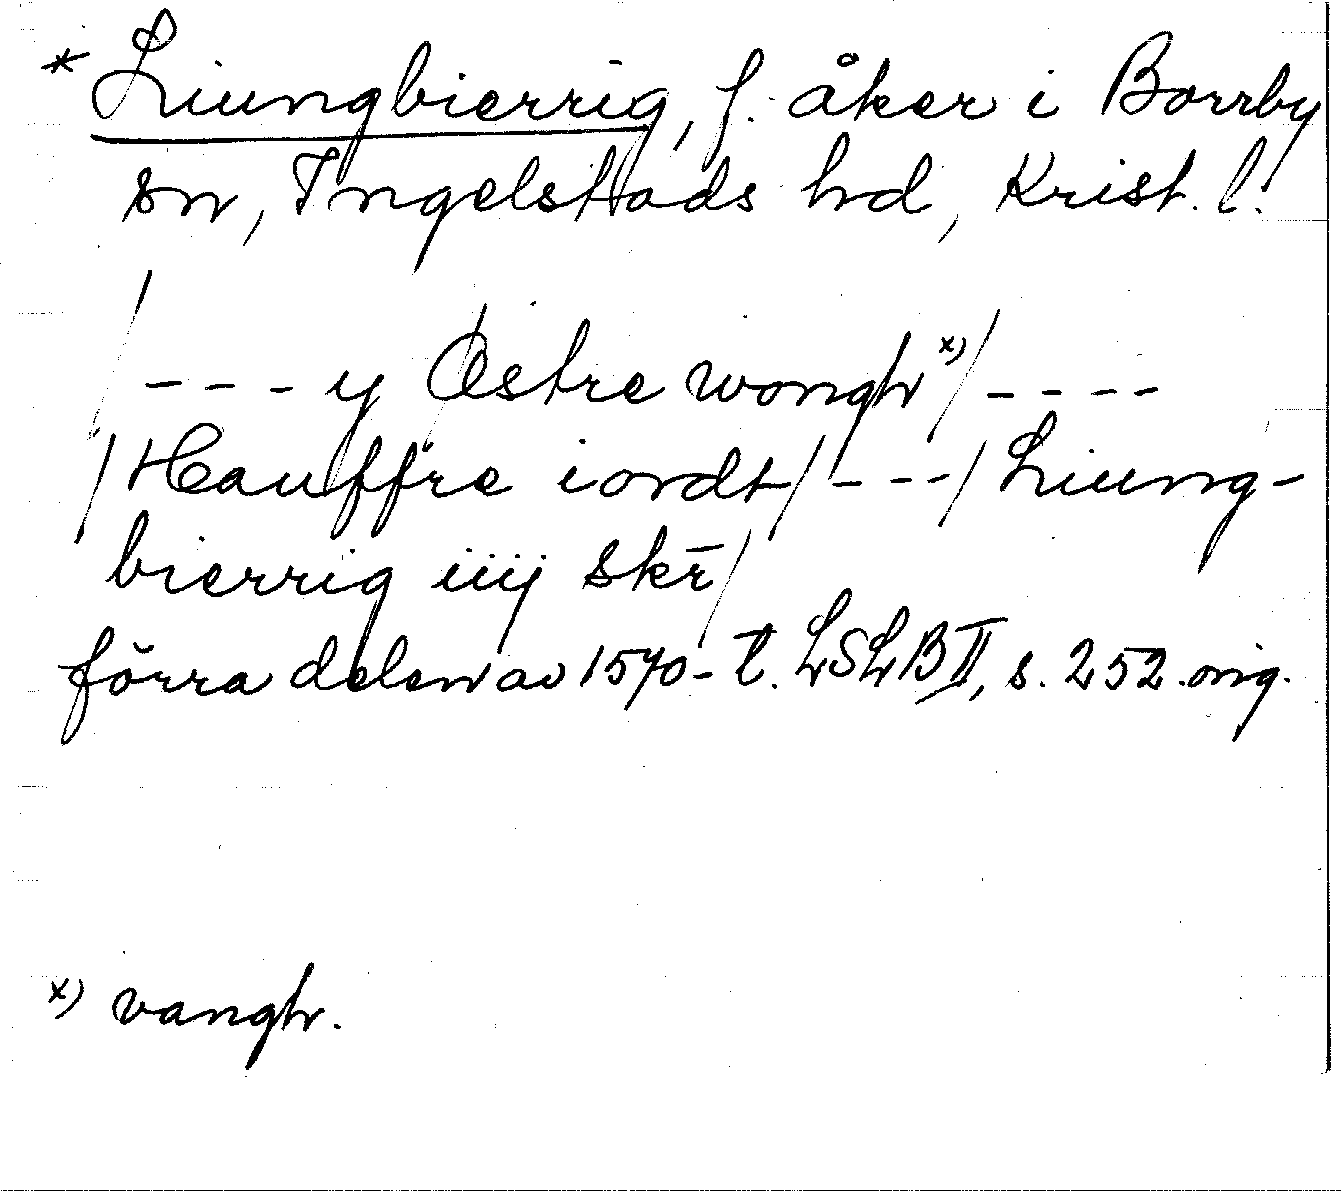 * Liungbierrig, f. åker i Borrby
sn, Ingelstads hd, Krist. l.
/ - - - y Østre wongh x) / - - - -
/ Hauffre iordt / - - - / Liung-
bierrig iiij skr̄ /
förra delen av 1570-t. LSLB II, s. 252. orig.
x) vangh.